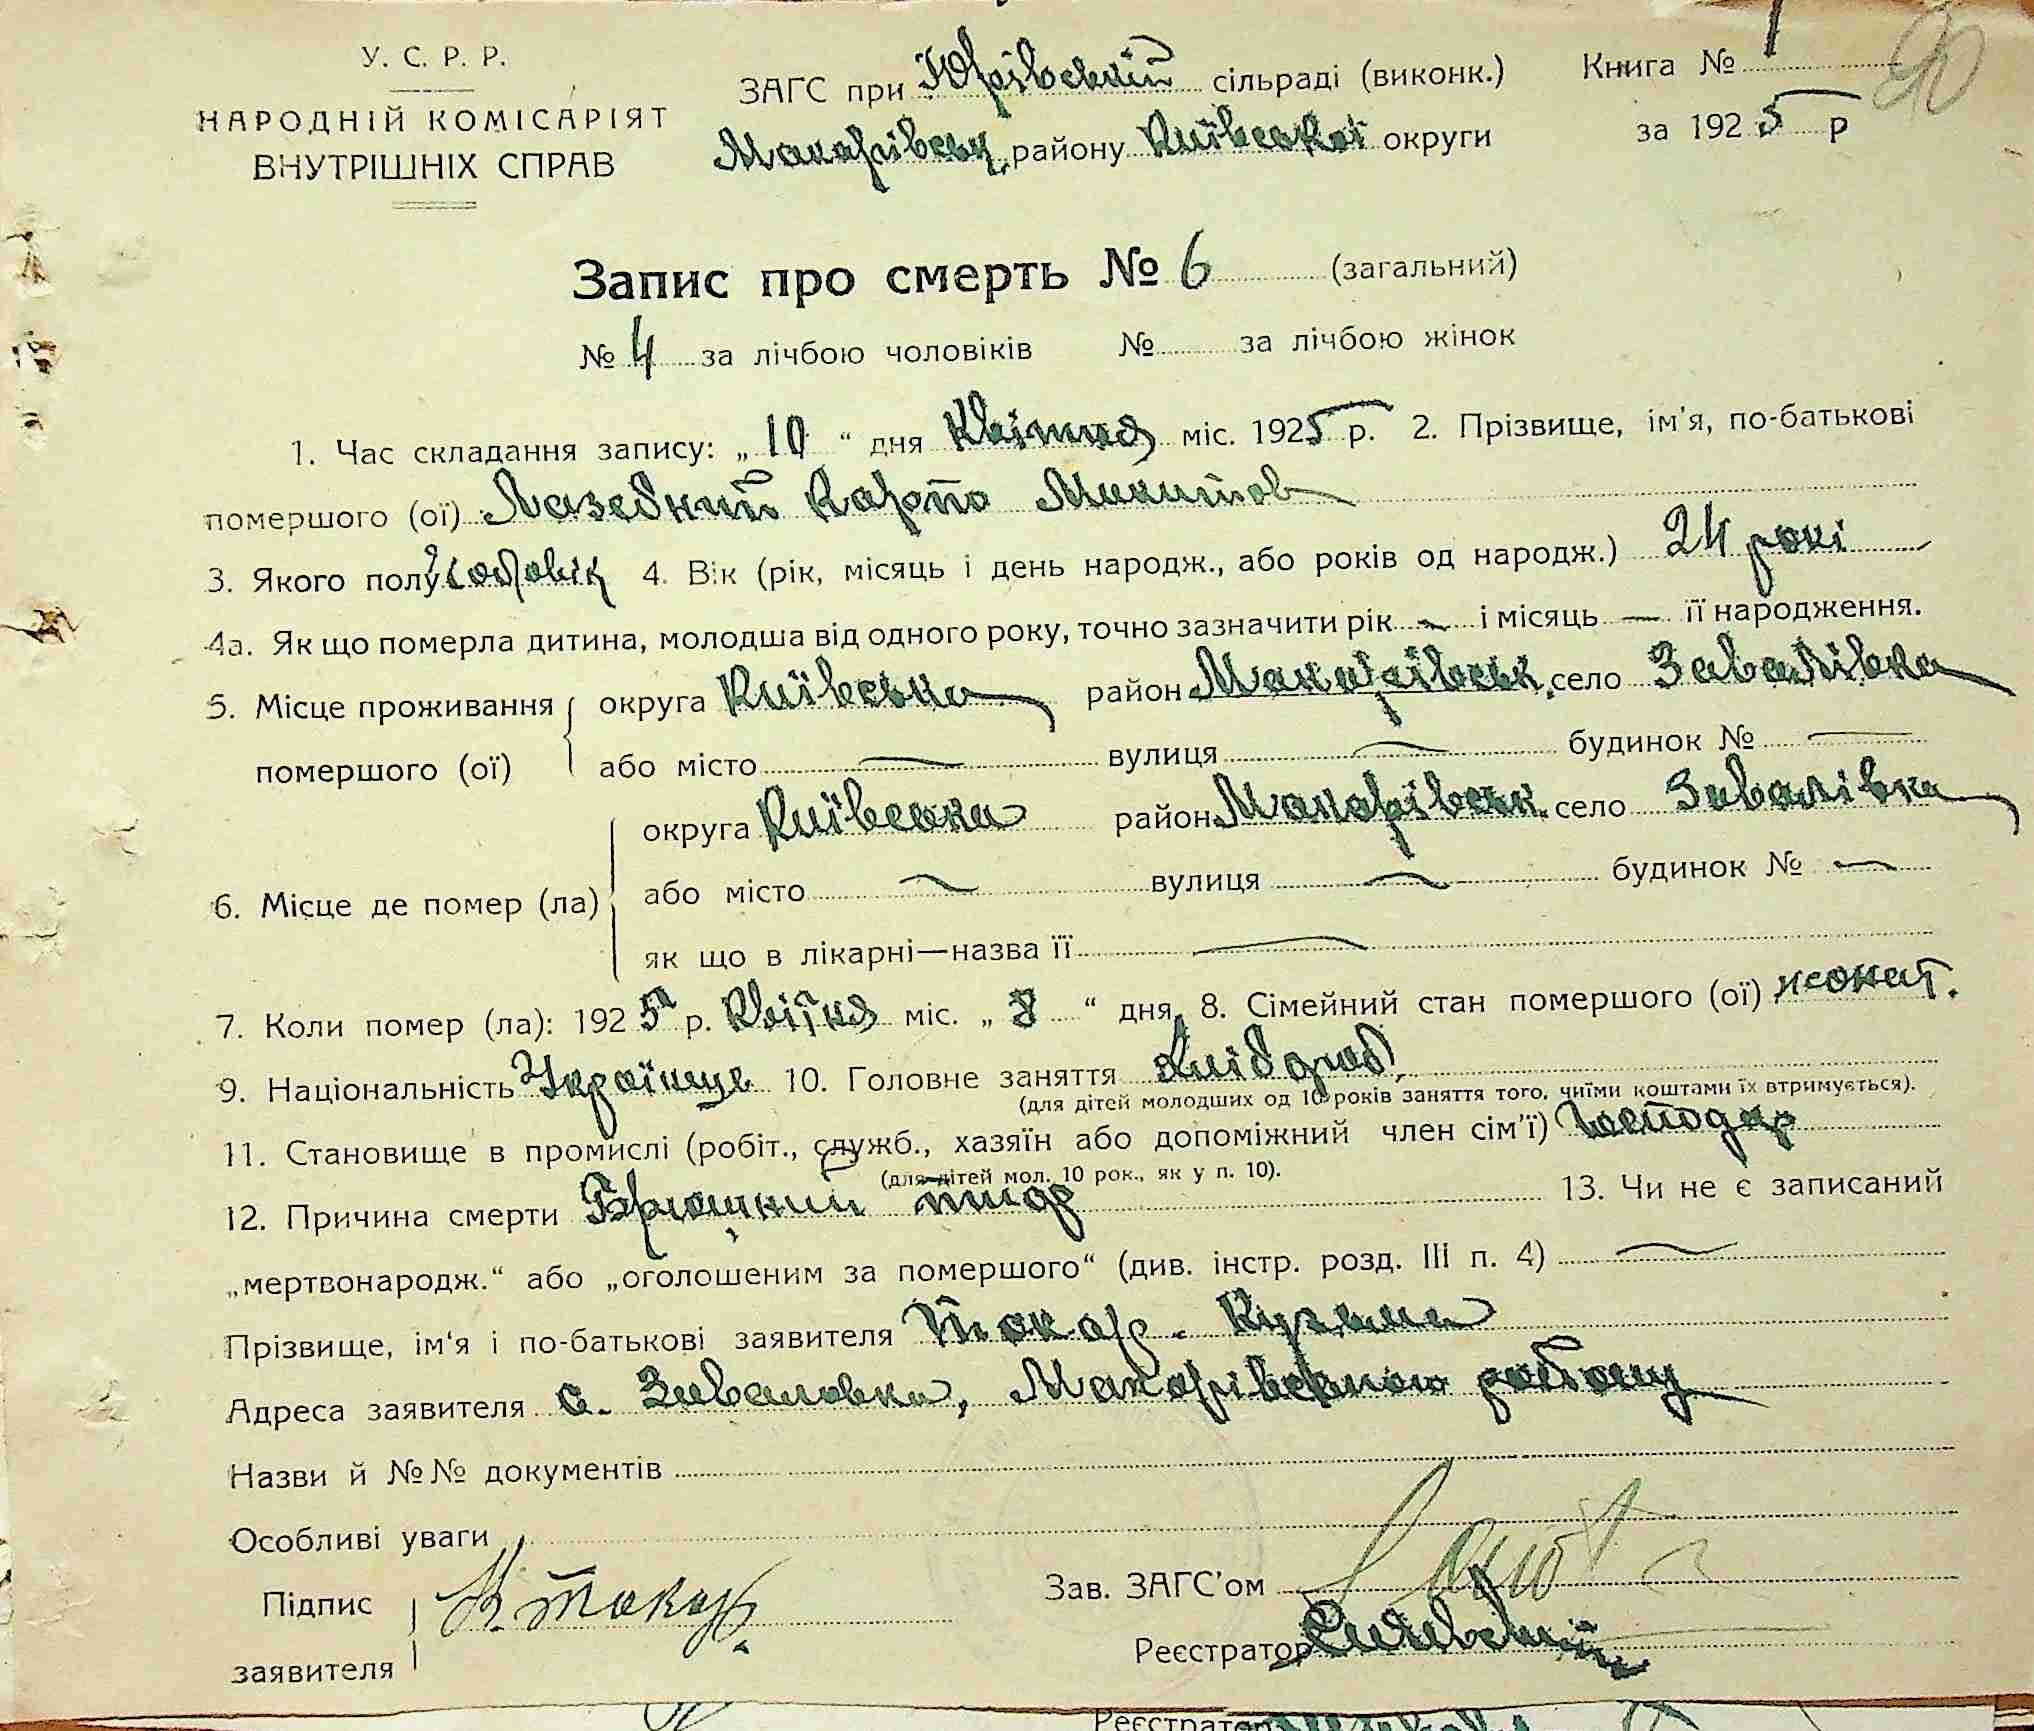 У. С. Р. Р.
НАРОДНІЙ КОМІСАРІЯТ
ВНУТРІШНІХ СПРАВ
ЗАГС при Юрівській сільраді (виконк.)
Макарівськ. району Київської округи
Книга № 1
за 1925 р
90
Запис про смерть № 6 (загальний)
№ 4 за лічбою чоловіків № за лічбою жінок
1. Час складання запису: „ 10 “ дня Квітня міс. 1925 р. 2. Прізвище, ім'я, по-батькові
помершого (ої) Лазебний Карпо Микитов
3. Якого полу Чоловік 4. Вік (рік, місяць і день народж., або років од народж.) 24 рокі
4а. Як що померла дитина, молодша від одного року, точно зазначити рік — і місяць — її народження.
5. Місце проживання помершого (ої) округа Київська район Макарівськ. село Завалівка
або місто — вулиця — будинок № —
6. Місце де помер (ла) округа Київська район Макарівськ. село Завалівка
або місто — вулиця — будинок № —
як що в лікарні—назва її —
7. Коли помер (ла): 1925 р. Квітня міс. „ 8 “ дня, 8. Сімейний стан помершого (ої) жонат.
9. Національність Українець 10. Головне заняття Хлібороб
(для дітей молодших од 10 років заняття того, чиїми коштами їх втримується).
11. Становище в промислі (робіт., служб., хазяїн або допоміжний член сім'ї) Господар
(для дітей мол. 10 рок., як у п. 10).
12. Причина смерти Брюшний тиф 13. Чи не є записаний
„мертвонародж.“ або „оголошеним за помершого“ (див. інстр. розд. III п. 4) —
Прізвище, ім'я і по-батькові заявителя Токар. Кузьма
Адреса заявителя с. Заваловка, Макарівського району
Назви й №№ документів
Особливі уваги
Підпис заявителя К. Токар.
Зав. ЗАГС'ом
Реєстратор
Реєстратор